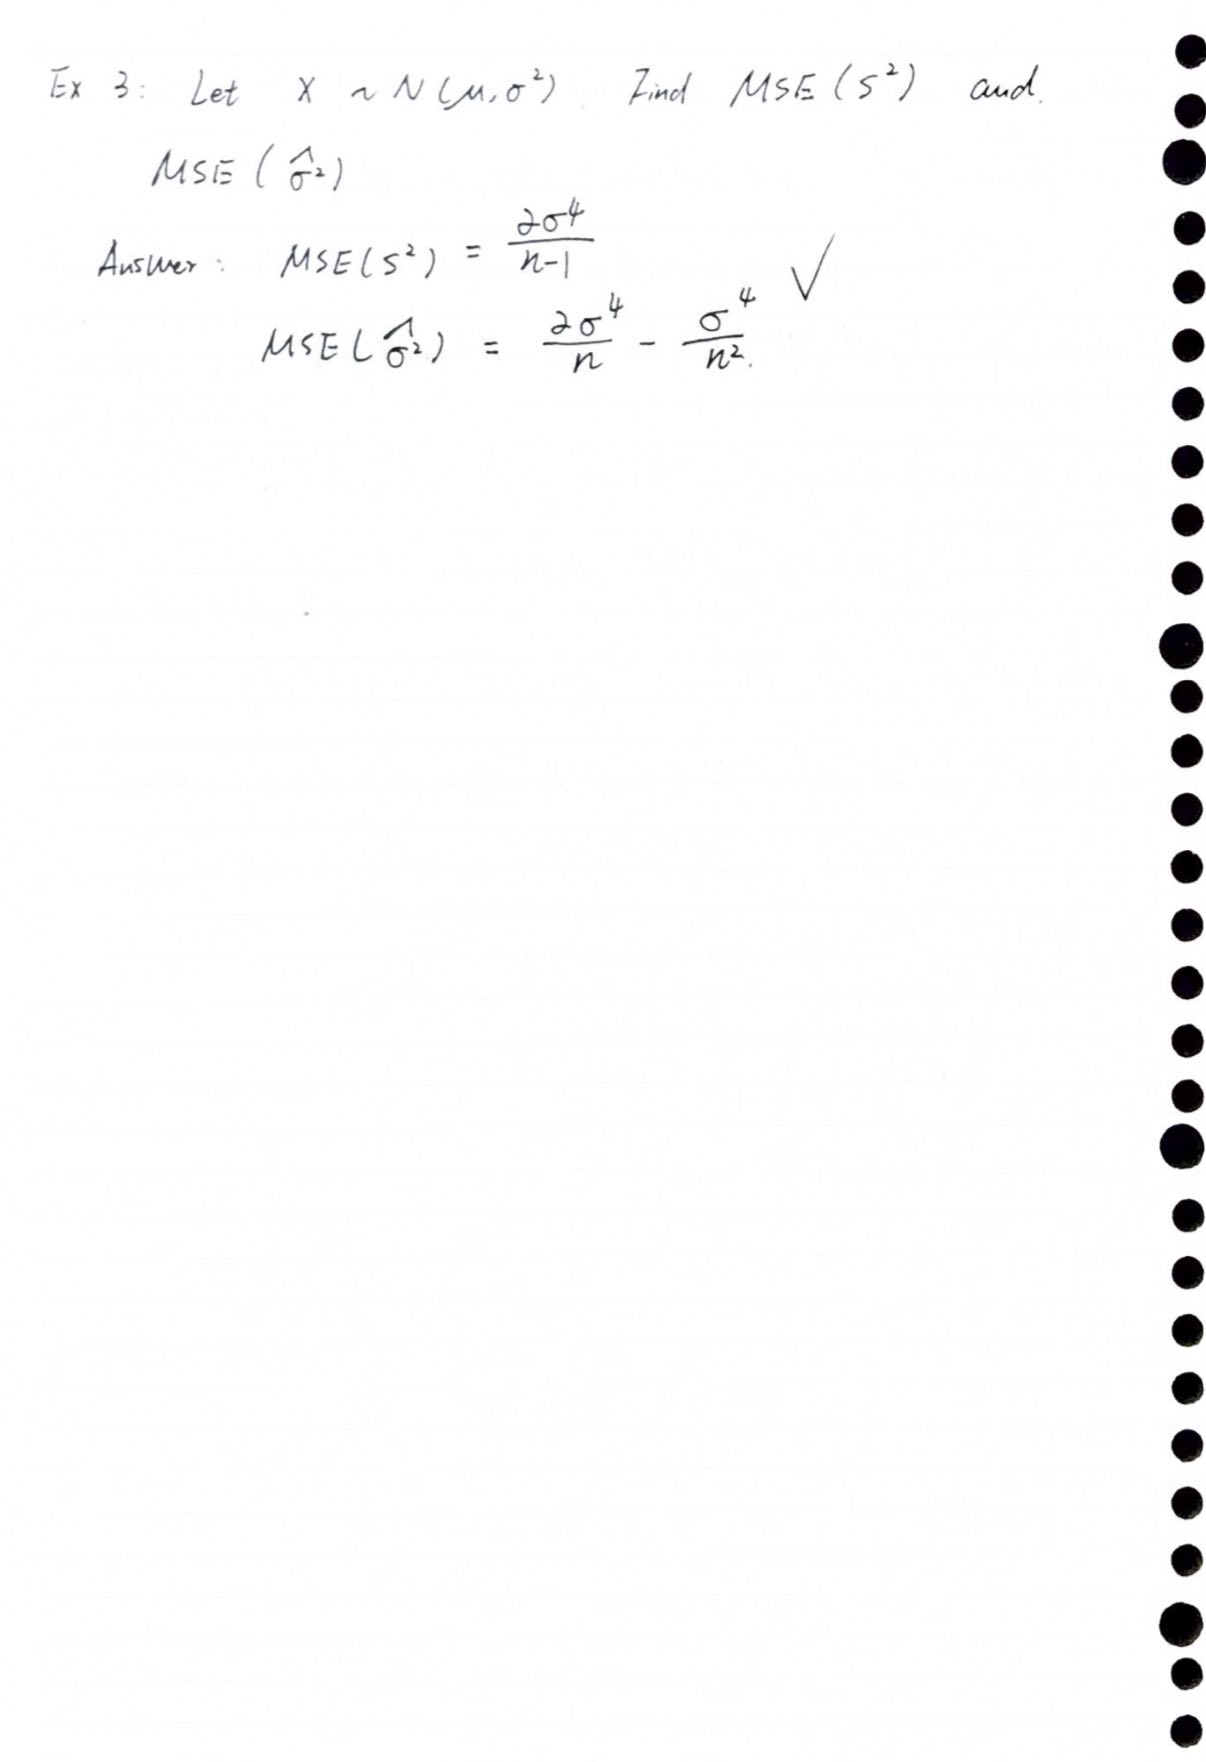 Ex 3: Let X ~ N(μ, σ²) Find MSE(S²) and.
MSE(σ̂²)
Answer: MSE(S²) = 2σ⁴/(n-1) ✓
MSE(σ̂²) = 2σ⁴/n - σ⁴/n².